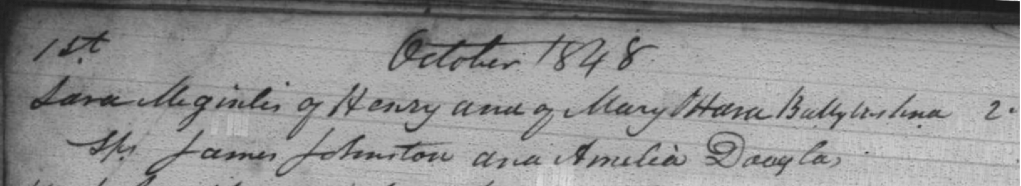 1st October 1848
Sara McGinlis of Henry and of Mary O'Hara 2
Sps James Johnston and Amelia Douglas